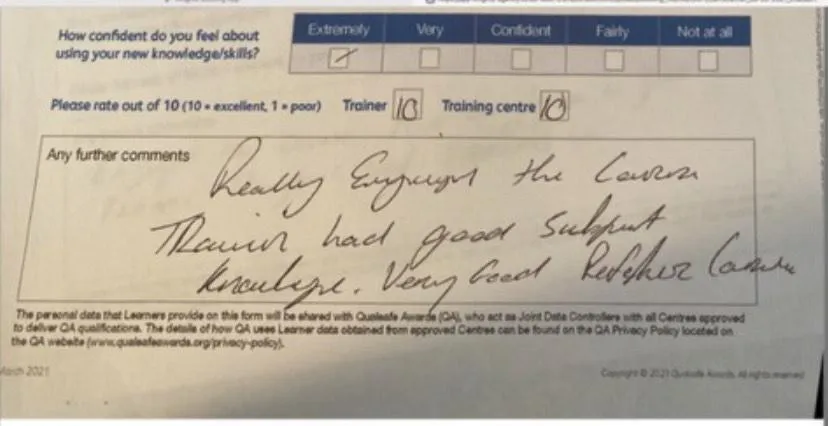 How confident do you feel about using your new knowledge/skills?
Extremely Very Confident Fairly Not at all
Please rate out of 10 (10 = excellent, 1 = poor) Trainer 10 Training centre 10
Any further comments
Really Enjoyed the Course
Trainer had good Subject
Knowledge. Very Good Refresher Course
The personal data that Learners provide on this form will be shared with Qualsafe Awards (QA), who act as Joint Data Controllers with all Centres approved
to deliver QA qualifications. The details of how QA uses Learner data obtained from approved Centres can be found on the QA Privacy Policy located on
the QA website (www.qualsafeawards.org/privacy-policy).
March 2021
Copyright © 2021 Qualsafe Awards. All rights reserved